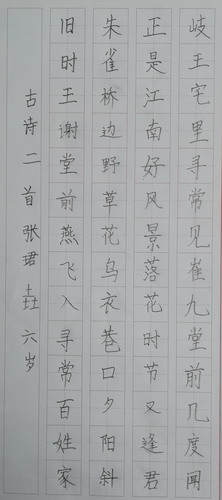 岐王宅里寻常见崔九堂前几度闻
正是江南好风景落花时节又逢君
朱雀桥边野草花乌衣巷口夕阳斜
旧时王谢堂前燕飞入寻常百姓家
古诗二首张珺壵六岁